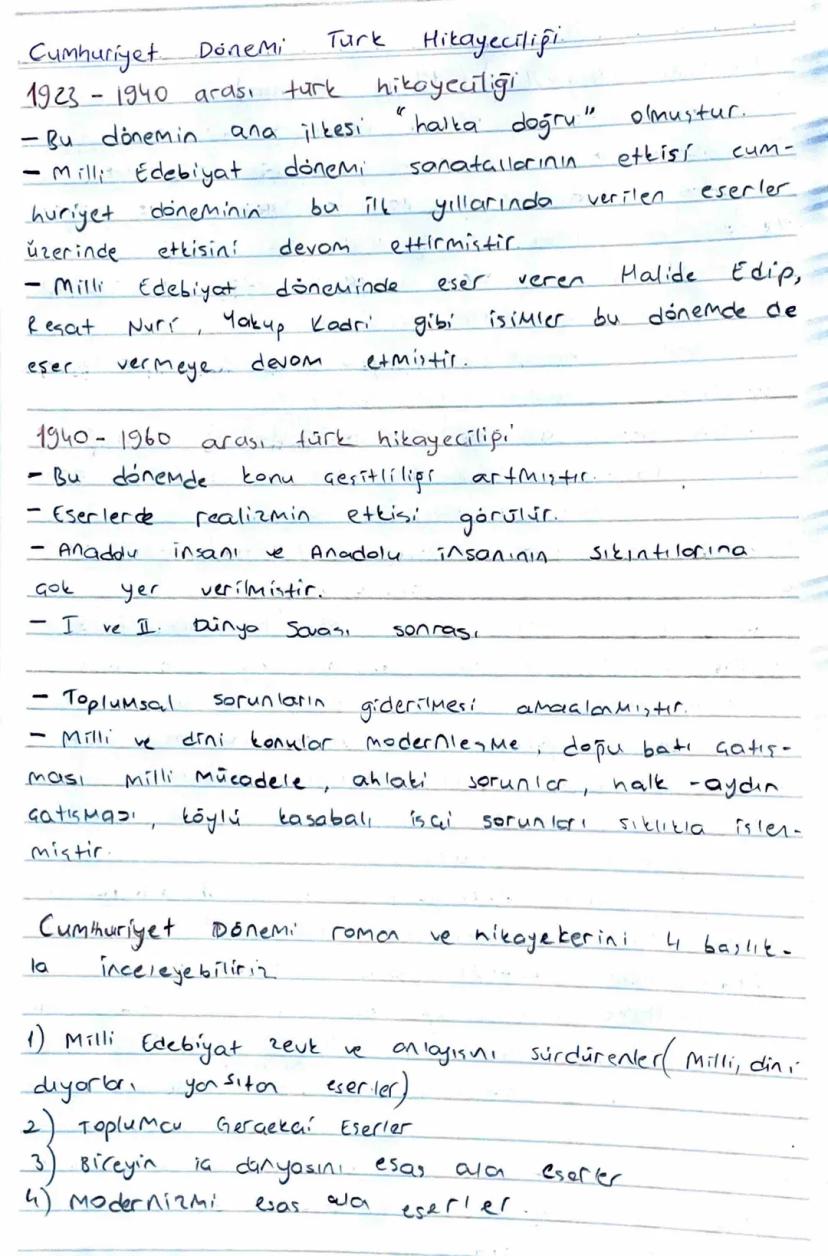 Cumhuriyet Dönemi Türk Hikayeciliği
1923 - 1940 arası türk hikayeciliği
- Bu dönemin ana ilkesi "halka doğru" olmuştur.
- Milli Edebiyat dönemi sanatçılarının etkisi cum-
huriyet döneminin bu ilk yıllarında verilen eserler
üzerinde etkisini devam ettirmiştir
- Milli Edebiyat döneminde eser veren Halide Edip,
Reşat Nuri, Yakup Kadri gibi isimler bu dönemde de
eser vermeye devam etmiştir.
1940 - 1960 arası türk hikayeciliği
- Bu dönemde konu çeşitliliği artmıştır.
- Eserlerde realizmin etkisi görülür.
- Anadolu insanı ve Anadolu insanının sıkıntılarına
çok yer verilmiştir.
- I ve II. Dünya Savaşı sonrası
- Toplumsal sorunların giderilmesi amaçlanmıştır.
- Milli ve dini konular modernleşme, doğu batı çatış-
ması Milli Mücadele, ahlaki sorunlar, halk - aydın
çatışması, köylü kasabalı işçi sorunları sıklıkla işlen-
miştir.
Cumhuriyet Dönemi roman ve hikayekerini 4 başlık-
la inceleyebiliriz
1) Milli Edebiyat zevk ve anlayışını sürdürenler (Milli, dini
duyarları yansıtan eserler)
2) Toplumcu Gerçekçi Eserler
3) Bireyin iç dünyasını esas ala eserler
4) Modernizmi esas ala eserler.